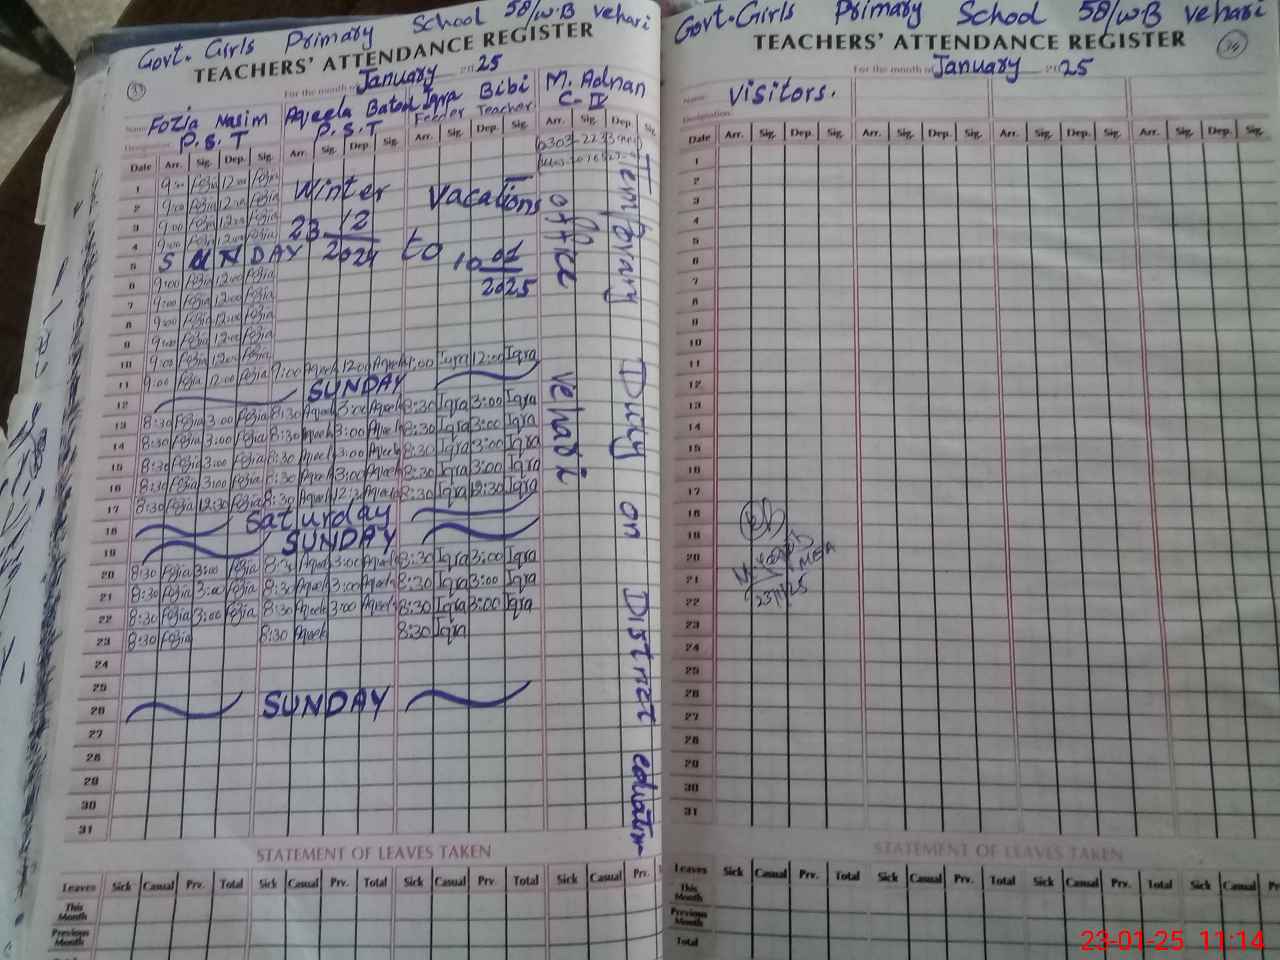 Govt. Girls Primary School 58/W.B Vehari
TEACHERS' ATTENDANCE REGISTER
33
For the month of January 2025
Name Fozia Nasim Aqeela Batool Iqra Bibi M. Adnan
Designation P.S.T P.S.T Feeder Teacher C-IV
Date Arr. Sig. Dep. Sig. Arr. Sig. Dep. Sig. Arr. Sig. Dep. Sig. Arr. Sig. Dep. Sig.
1 9:00 Fozia 12:00 Fozia
2 9:00 Fozia 12:00 Fozia
3 9:00 Fozia 12:00 Fozia
4 9:00 Fozia 12:00 Fozia
Winter Vacations
23 12/2024 to 10 01/2025
5 SUNDAY
6 9:00 Fozia 12:00 Fozia
7 9:00 Fozia 12:00 Fozia
8 9:00 Fozia 12:00 Fozia
9 9:00 Fozia 12:00 Fozia
10 9:00 Fozia 12:00 Fozia
11 9:00 Fozia 12:00 Fozia 9:00 Aqeela 12:00 Aqeela 9:00 Iqra 12:00 Iqra
12 SUNDAY
13 8:30 Fozia 3:00 Fozia 8:30 Aqeela 3:00 Aqeela 8:30 Iqra 3:00 Iqra
14 8:30 Fozia 3:00 Fozia 8:30 Aqeela 3:00 Aqeela 8:30 Iqra 3:00 Iqra
15 8:30 Fozia 3:00 Fozia 8:30 Aqeela 3:00 Aqeela 8:30 Iqra 3:00 Iqra
16 8:30 Fozia 3:00 Fozia 8:30 Aqeela 3:00 Aqeela 8:30 Iqra 3:00 Iqra
17 8:30 Fozia 12:30 Fozia 8:30 Aqeela 12:30 Aqeela 8:30 Iqra 12:30 Iqra
18 Saturday
19 SUNDAY
20 8:30 Fozia 3:00 Fozia 8:30 Aqeela 3:00 Aqeela 8:30 Iqra 3:00 Iqra
21 8:30 Fozia 3:00 Fozia 8:30 Aqeela 3:00 Aqeela 8:30 Iqra 3:00 Iqra
22 8:30 Fozia 3:00 Fozia 8:30 Aqeela 3:00 Aqeela 8:30 Iqra 3:00 Iqra
23 8:30 Fozia 8:30 Aqeela 8:30 Iqra
24
25
26 SUNDAY
27
28
29
30
31
Temporary Duty on District education
office vehari
STATEMENT OF LEAVES TAKEN
Leaves Sick Casual Prv. Total Sick Casual Prv. Total Sick Casual Prv. Total Sick Casual Prv.
This Month
Previous Month
Govt. Girls Primary School 58/W.B Vehari
TEACHERS' ATTENDANCE REGISTER
34
For the month of January 2025
Name Visitors.
Designation
Date Arr. Sig. Dep. Sig. Arr. Sig. Dep. Sig. Arr. Sig. Dep. Sig. Arr. Sig. Dep. Sig.
1
2
3
4
5
6
7
8
9
10
11
12
13
14
15
16
17
18
19
20
21
22
23
24
25
26
27
28
29
30
31
MEA
23/1/25
STATEMENT OF LEAVES TAKEN
Leaves Sick Casual Prv. Total Sick Casual Prv. Total Sick Casual Prv. Total Sick Casual
This Month
Previous Month
Total
23-01-25 11:14